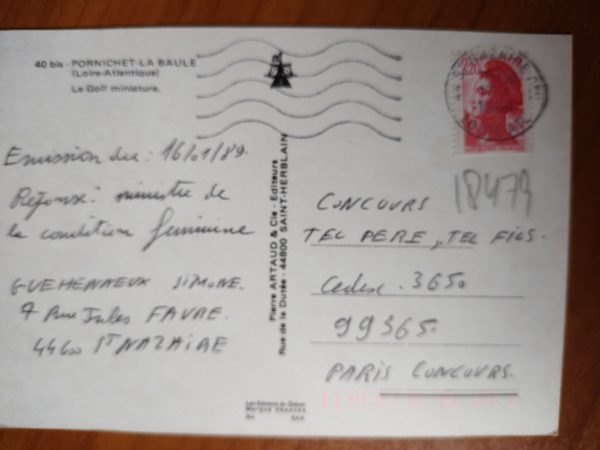 40 bis - PORNICHET-LA BAULE
(Loire-Atlantique)
Le Golf miniature.
Emission du : 16/01/89.
Réponse : ministre de
la condition feminine
GUEHENNEUX SIMONE.
7 Rue Jules FAVRE.
44600 ST NAZAIRE
Pierre ARTAUD & Cie - Editeurs
Rue de la Dutée - 44800 SAINT-HERBLAIN
2,20
18479
CONCOURS
TEL PERE, TEL FILS.
Cedex. 3650
99365.
PARIS CONCOURS.